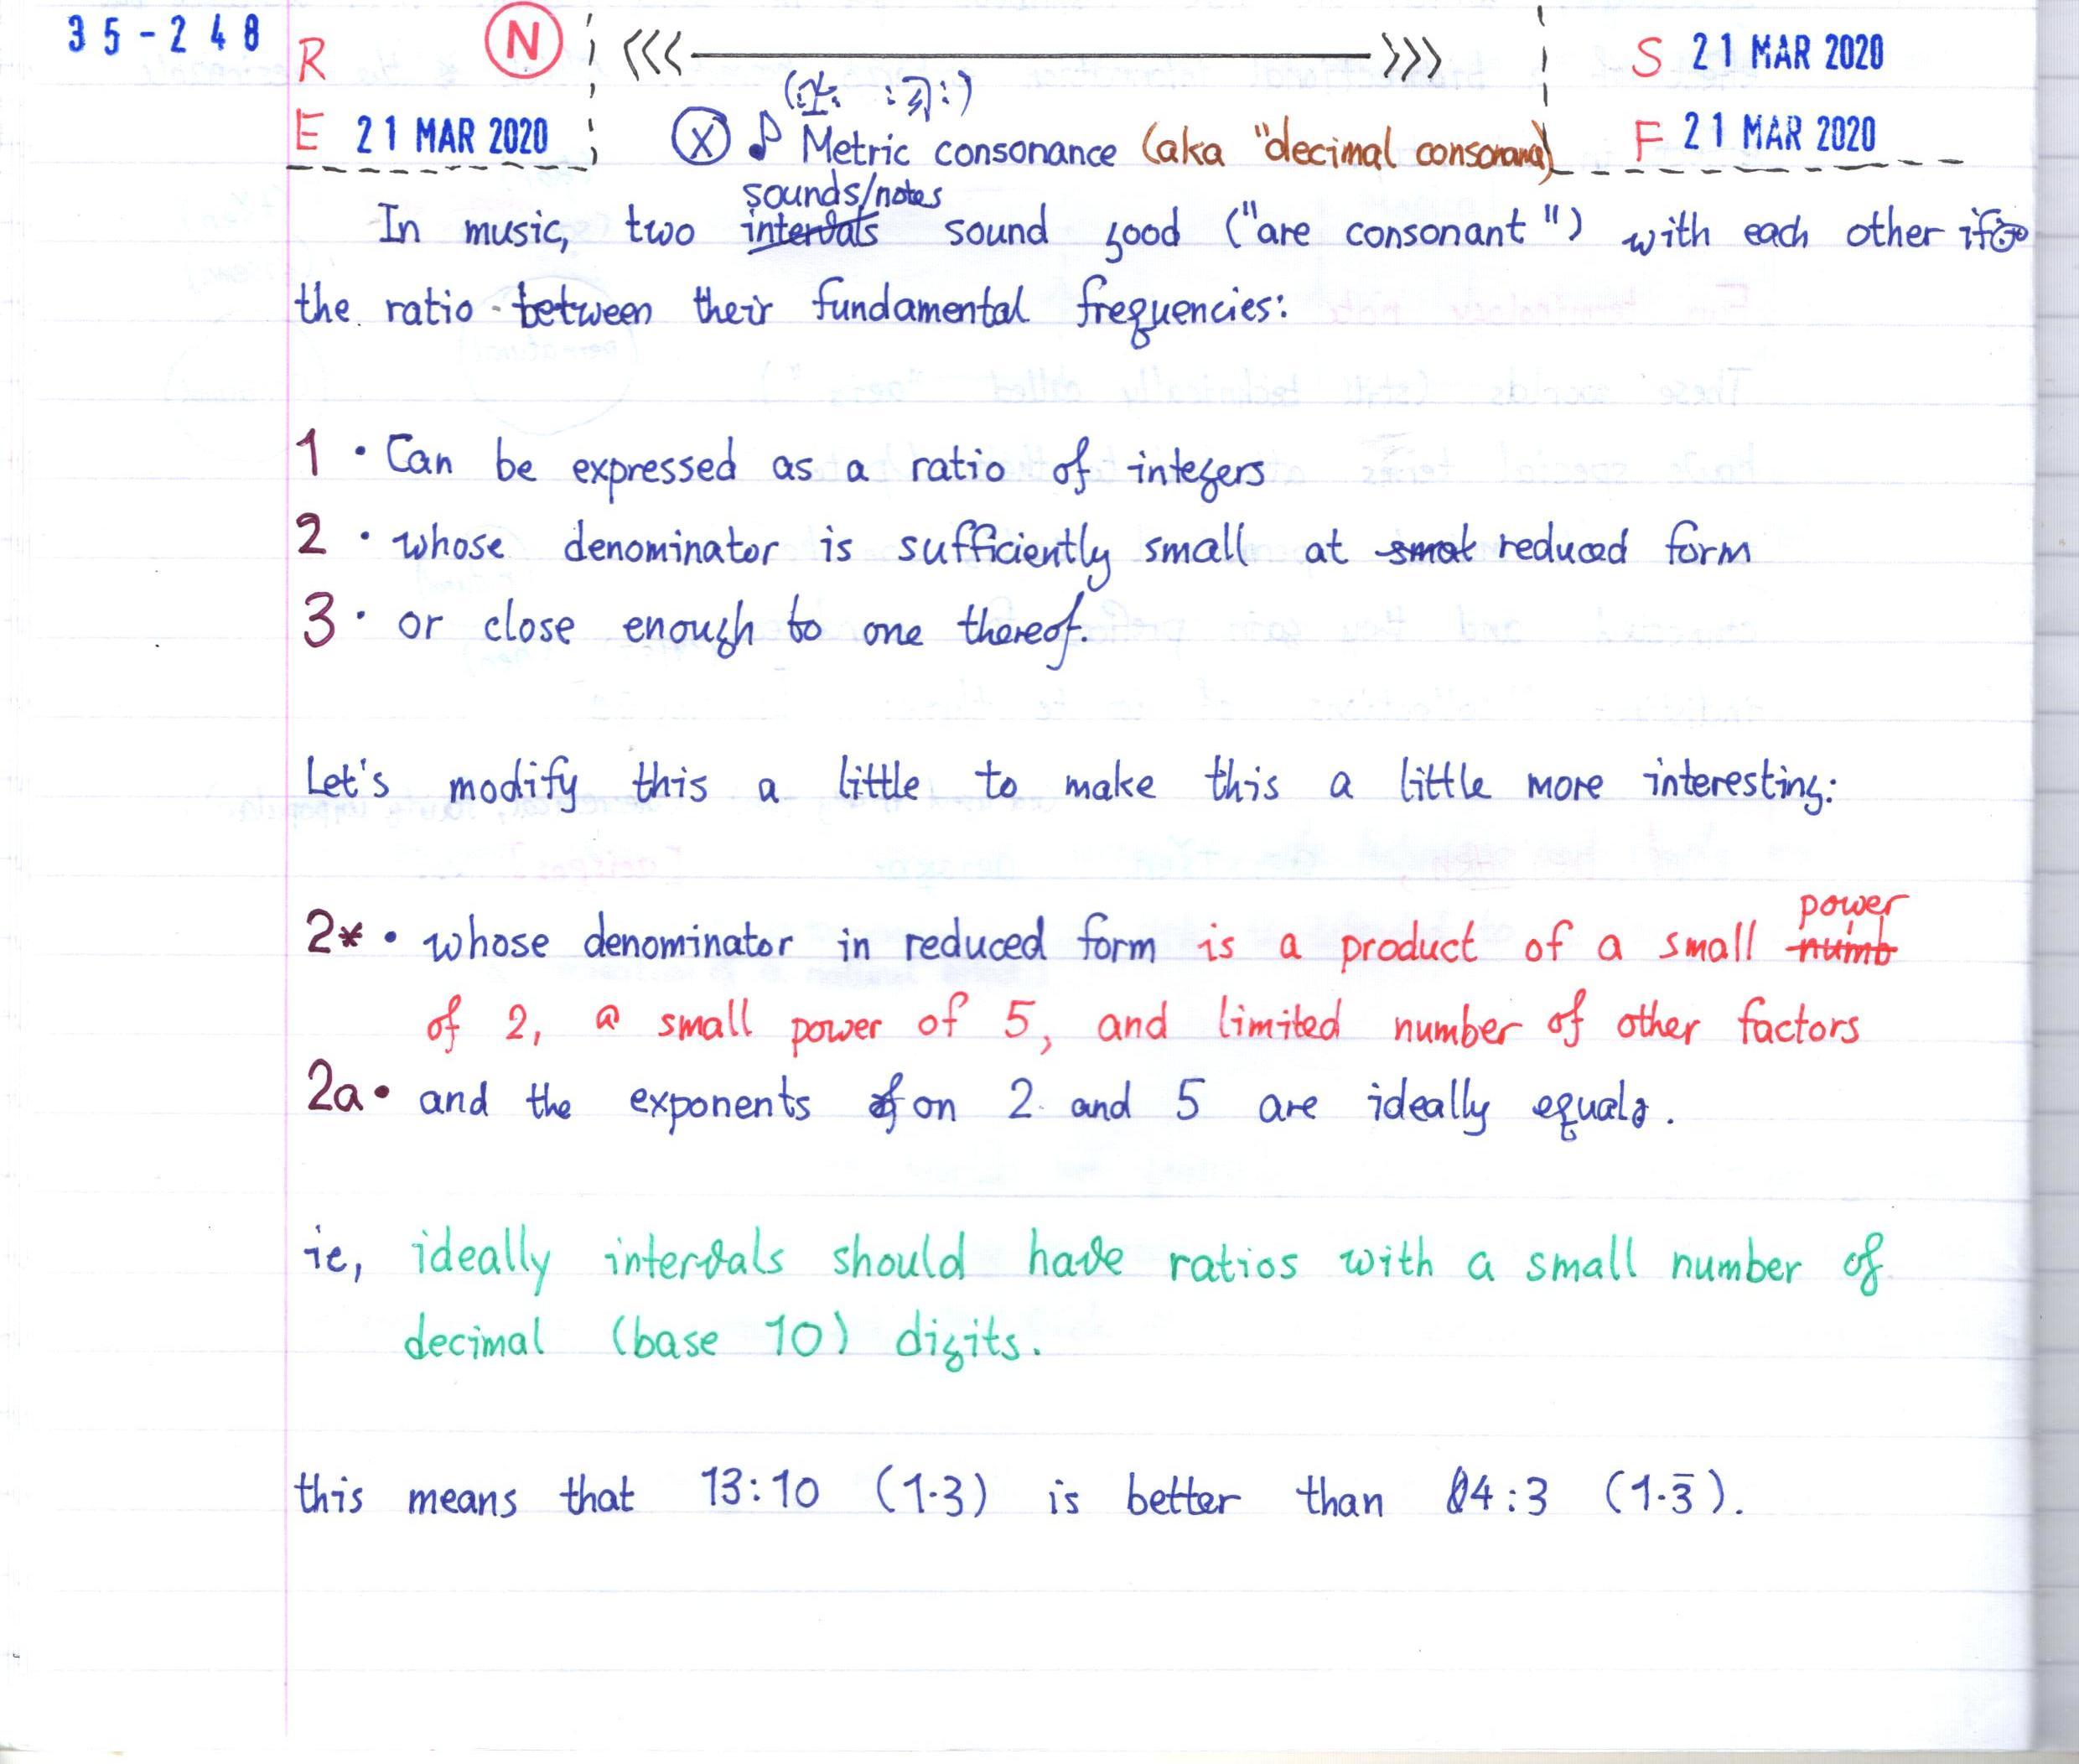 35-248
R N S 21 MAR 2020
E 21 MAR 2020 F 21 MAR 2020
X ♪ Metric consonance (aka "decimal consonance)
sounds/notes
In music, two intervals sound good ("are consonant") with each other if
the ratio between their fundamental frequencies:
1 · Can be expressed as a ratio of integers
2 · whose denominator is sufficiently small at smal reduced form
3 · or close enough to one thereof.
Let's modify this a little to make this a little more interesting:
power
2* • whose denominator in reduced form is a product of a small numb
of 2, a small power of 5, and limited number of other factors
2a • and the exponents of on 2 and 5 are ideally equal.
ie, ideally intervals should have ratios with a small number of
decimal (base 10) digits.
this means that 13:10 (1·3) is better than 4:3 (1·3̅).